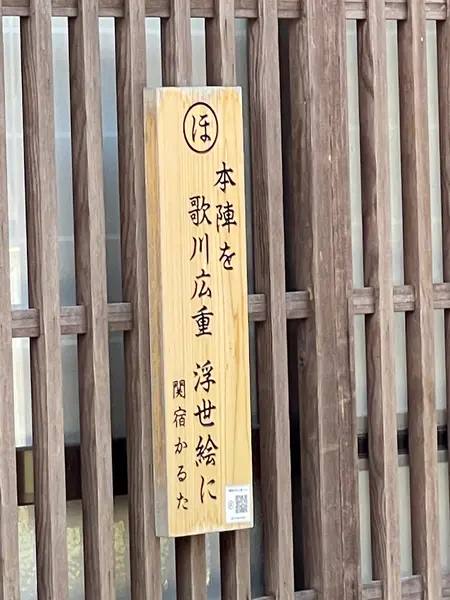 ほ
本陣を
歌川広重 浮世絵に
関宿かるた